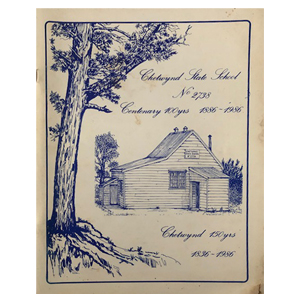 Chetwynd State School
No 2738
Centenary 100yrs 1886-1986
Chetwynd 150yrs
1836-1986